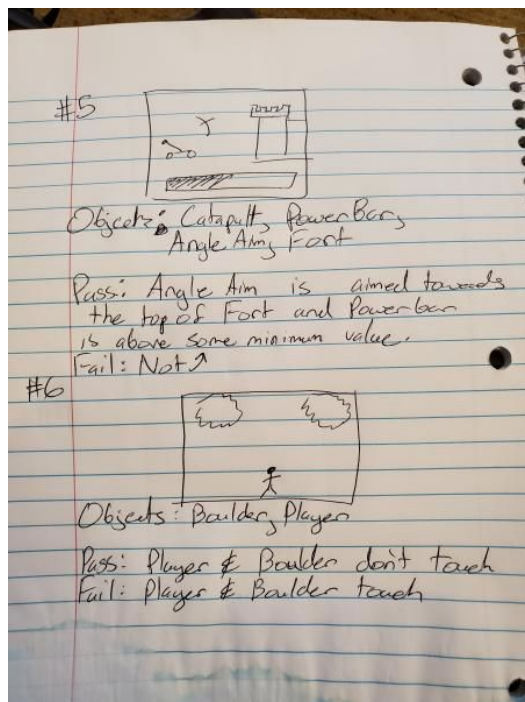 #5
Objects: Catapult, Power Bar,
Angle Aim, Fort
Pass: Angle Aim is aimed towards
the top of Fort and Powerbar
is above some minimum value.
Fail: Not ↗
#6
Objects: Boulder, Player
Pass: Player & Boulder don't touch
Fail: Player & Boulder touch